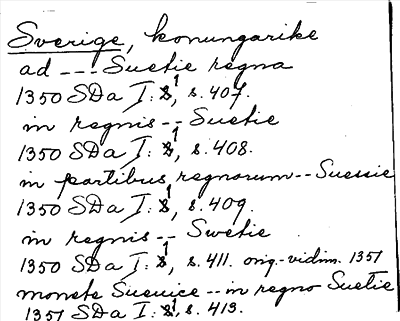 Sverige, konungarike
ad --- Suetie regna
1350 SDa I: 1, s. 407.
in regnis -- Suetie
1350 SDa I: 1, s. 408.
in partibus regnorum -- Suessie
1350 SDa I: 1, s. 409.
in regnis -- Swetie
1350 SDa I: 1, s. 411. orig.-vidim. 1351
monete Sueuice -- in regno Suetie
1351 SDa I: 1, s. 413.